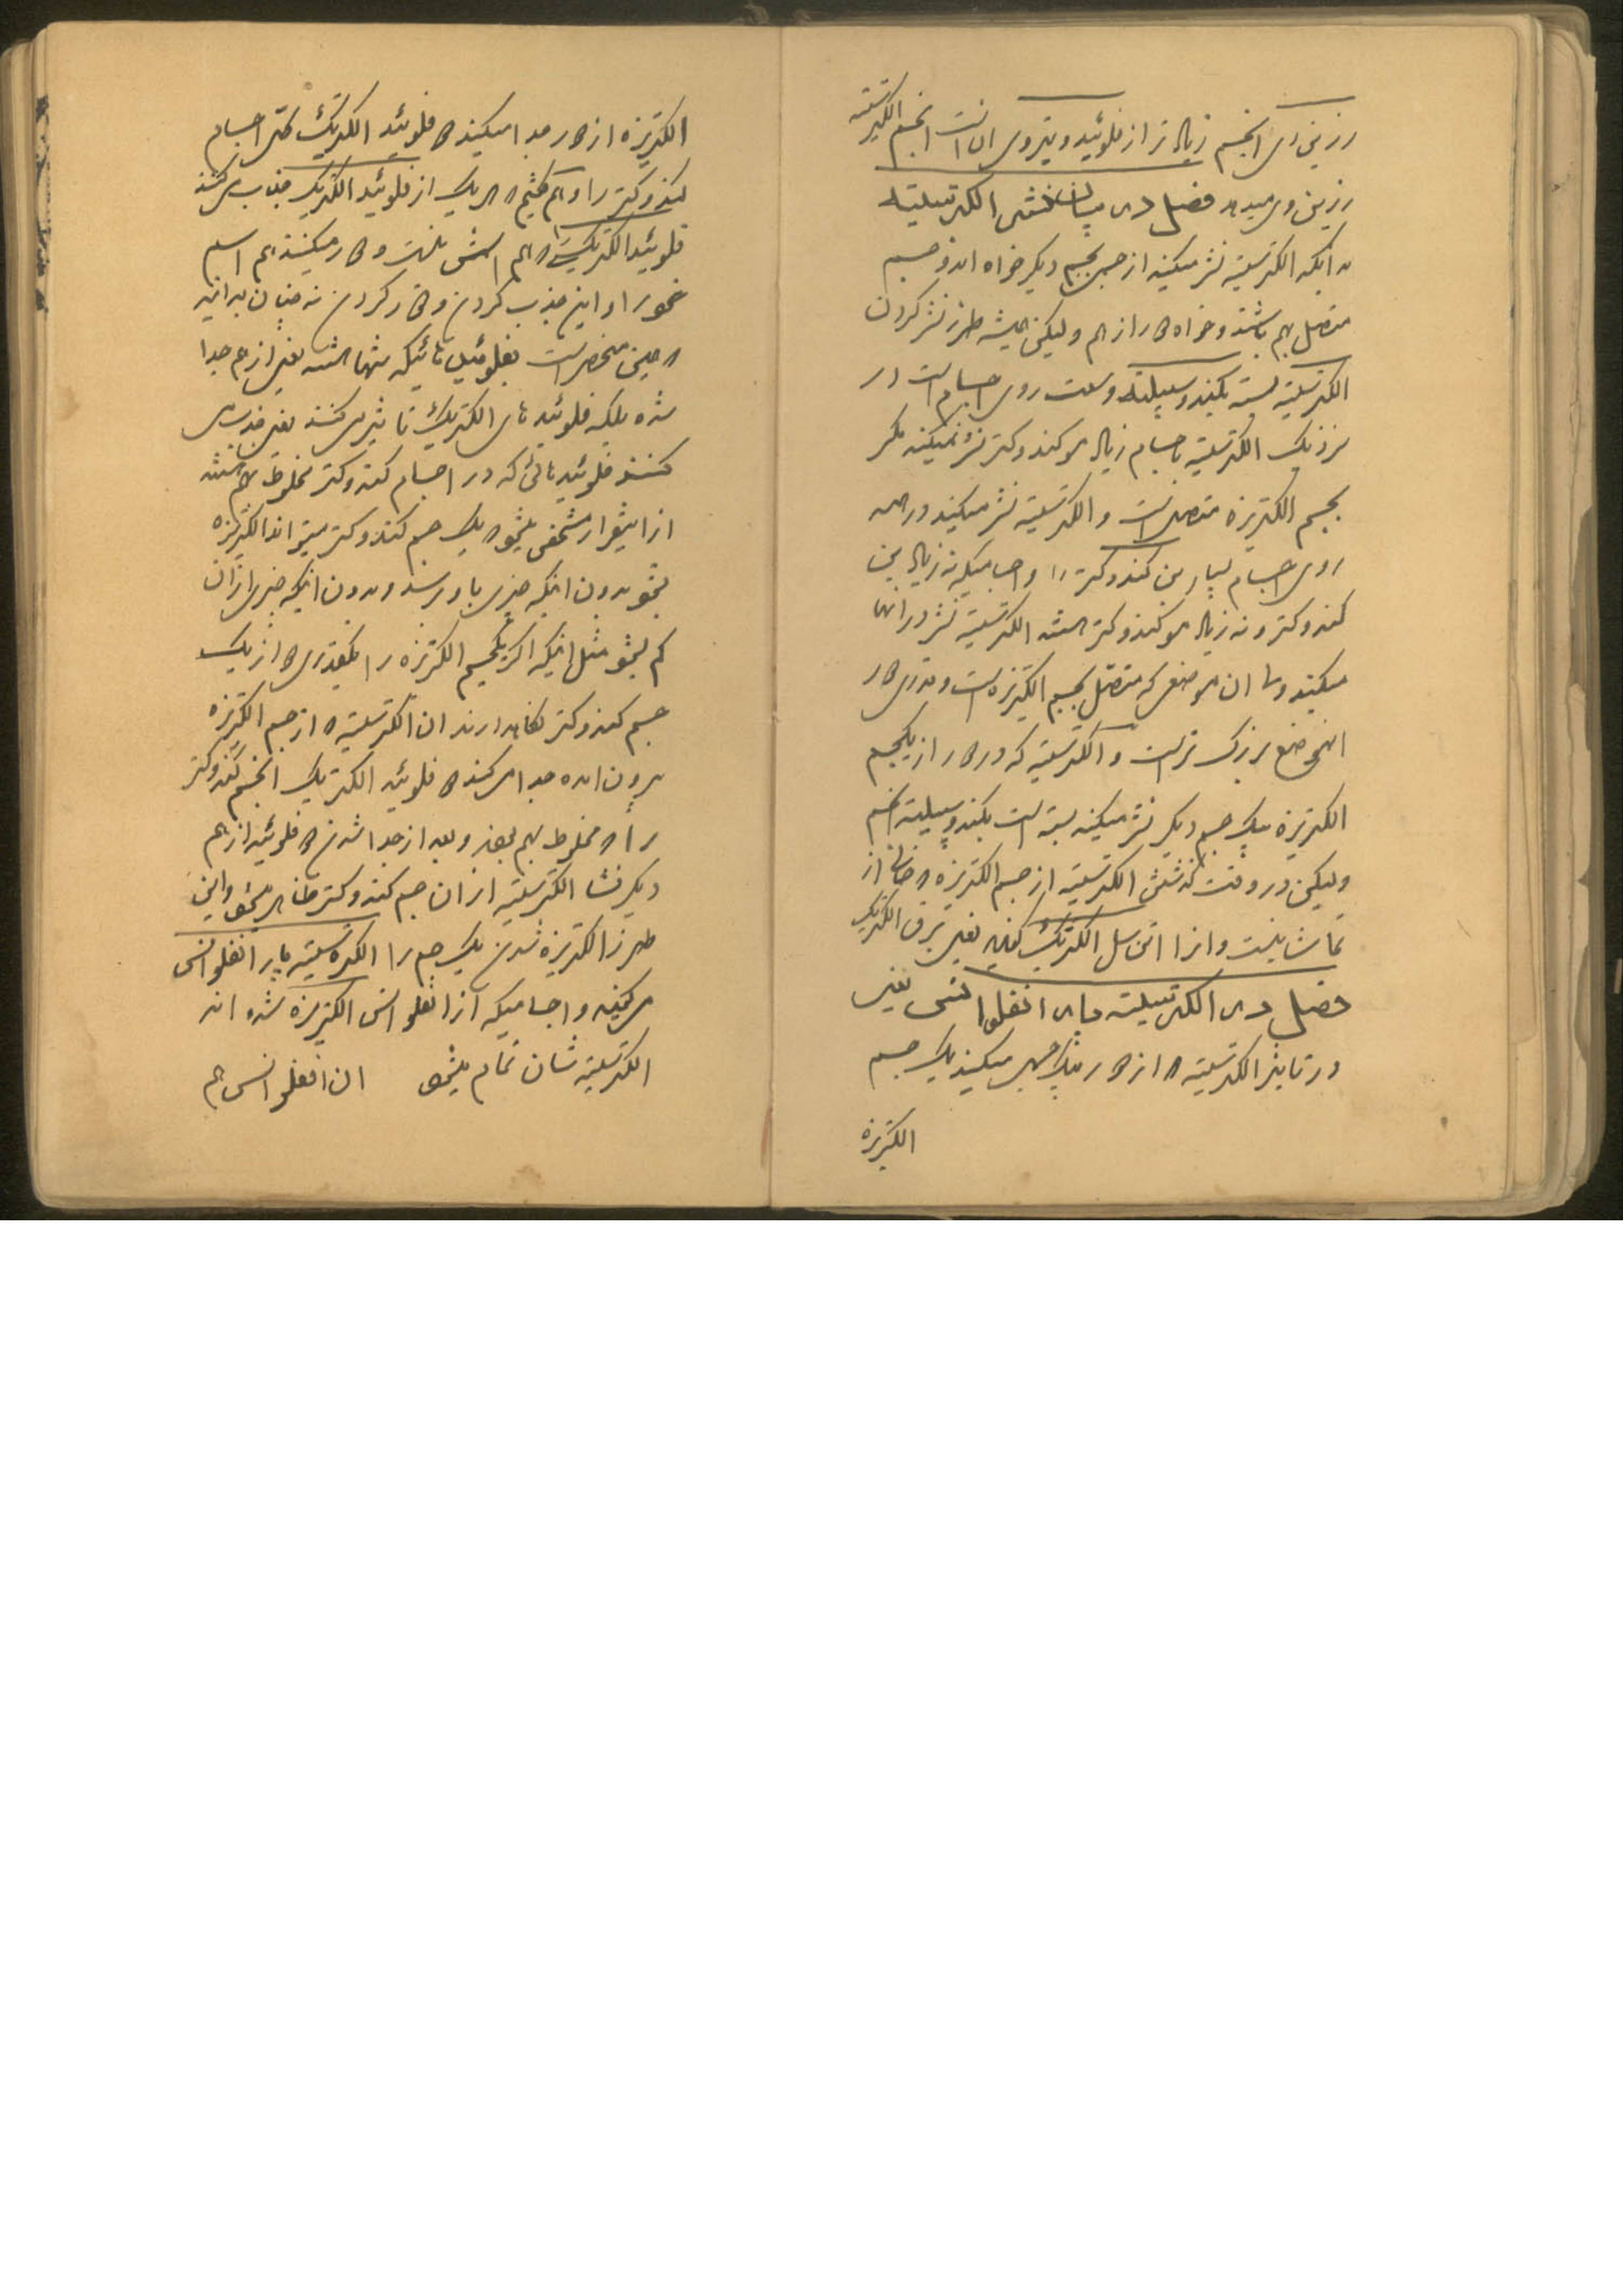 رزینی دی انجسم زیاد تر از فلوئید ویتروی ان است انجسم الکتریسته
رزینی دی میدهد فصل در بیان نشر الکتریسیته
بدانکه الکتریسیته نشر میکند از جسمی بجسم دیگر خواه اندو جسم
متصل بهم باشند و خواه دور از هم ولیکن همیشه طرز نشر کردن
الکتریسیته بسته بکندوسیبیلیته وسعت روی اجسام است در
نزدیک الکتریسیته باجسام زیاد مو کندوکتر نشر نمیکند مگر
بجسم الکتریزه متصل است و الکتریسیته نشر میکند در همه
روی اجسام بسیار بن کندوکتر را و اجسامیکه نه زیاد بن
کندوکتر و نه زیاد مو کندوکتر هستند الکتریسیته نشر در انها
میکند و تا ان موضعی که متصل بجسم الکتریزه است و قدری دور
انموضع بزرگ تر است و الکتریسیته که در دور از یکجسم
الکتریزه بیک جسم دیگر نشر میکند بسته است بکندوسیبیلیته انجسم
ولیکن در وقت گذشتن الکتریسیته از جسم الکتریزه خالی از
تماشا نیست و انرا اتن سل الکتریک گویند یعنی برق الکتریک
فصل در الکتریسیته پار انفلوانس یعنی
در تاثیر الکتریسیته از دور بیک جسم میکند یک جسم
الکتریزه
الکتریزه از دور جدا میکند دو فلوئید الکتریک حتی اجسام
کندوکتر را و هم گفتیم هر یک از فلوئید الکتریک جذب میکنند
فلوئید الکتریک که هم اسمش نیست و دور میکنند هم اسم
خود را و این جذب کردن و دور کردن نه چنان بدانید
همین منحصر است بفلوئیدهائیکه تنها هستند یعنی از هم جدا
شده بلکه فلوئید های الکتریک تاثیر میکنند یعنی جذب می
کنند فلوئیدهائی که در اجسام کندوکتر مخلوط بهم هستند
از اینقرار مشخص میشود یک جسم کندوکتر میتواند الکتریزه
بشود بدون اینکه چیزی باو برسد و بدون اینکه چیزی از ان
کم بشود مثل اینکه اگر یکجسم الکتریزه را بقدری دور از یک
جسم کندوکتر نگاهدارند ان الکتریسیته از جسم الکتریزه
بیرون امده جدا میکند دو فلوئید الکتریک انجسم کندوکتر
را که مخلوط بهم بودند و بعد از جدا شدن دو فلوئید از هم
دیگر نشا الکتریسیته از ان جسم کندوکتر ظاهر میشود و این
طرز الکتریزه شدن یک جسم را الکتریسیته پار انفلوانس
میگویند و اجسامیکه از انفلوانس الکتریزه شده اند
الکتریسیته شان تمام میشود ان انفلوانس هم